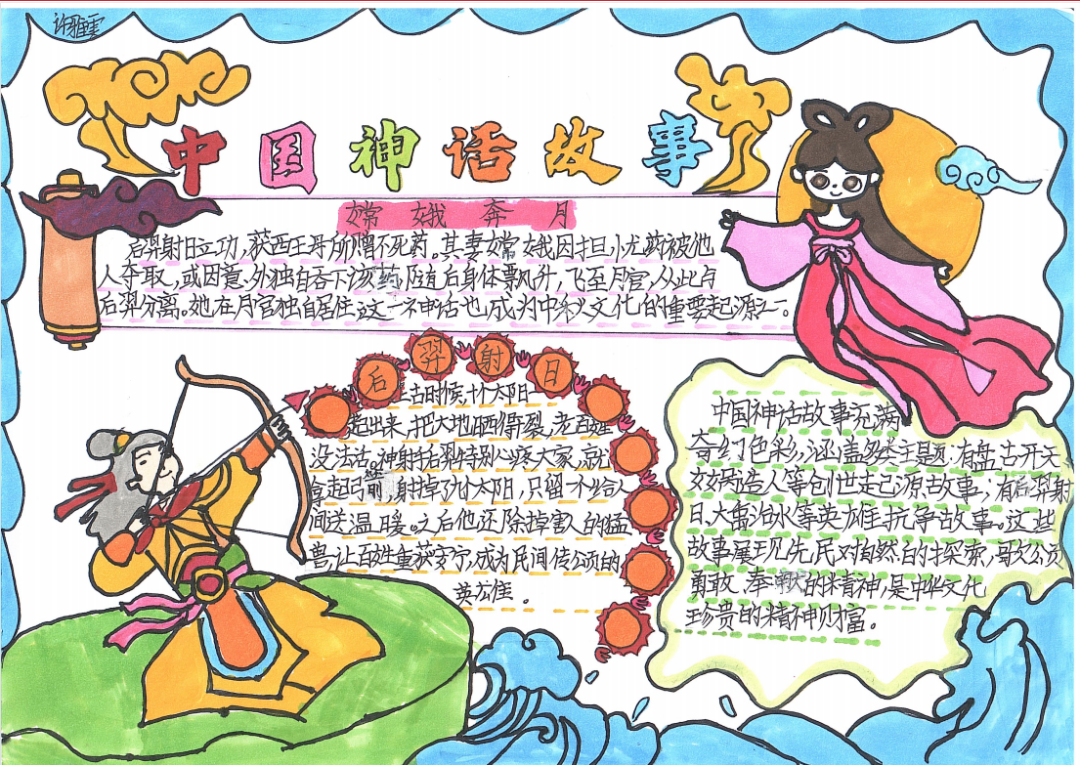 许雅雯
中国神话故事
嫦娥奔月
后羿射日立功,获西王母所赠不死药。其妻嫦娥因担心尤药被他
人夺取,或因意外独自吞下该药,随后身体飘升,飞至月宫,从此与
后羿分离。她在月宫独自居住,这一神话也成为中秋文化的重要起源之一。
后羿射日
古时候,十个太阳一
起出来,把大地晒得裂,老百姓
没法活。神射手后羿特别心疼大家,就
拿起弓箭,射掉了九个太阳,只留一个给人
间送温暖。之后他还除掉害人的猛
兽,让百姓重获安宁,成为民间传颂的
英雄。
中国神话故事充满
奇幻色彩,涵盖多类主题:有盘古开天
女娲造人等创世起源故事;有后羿射
日、大禹治水等英雄抗争故事。这些
故事展现先民对自然的探索,歌公页
勇敢、奉献的精神,是中华文化
珍贵的精神财富。